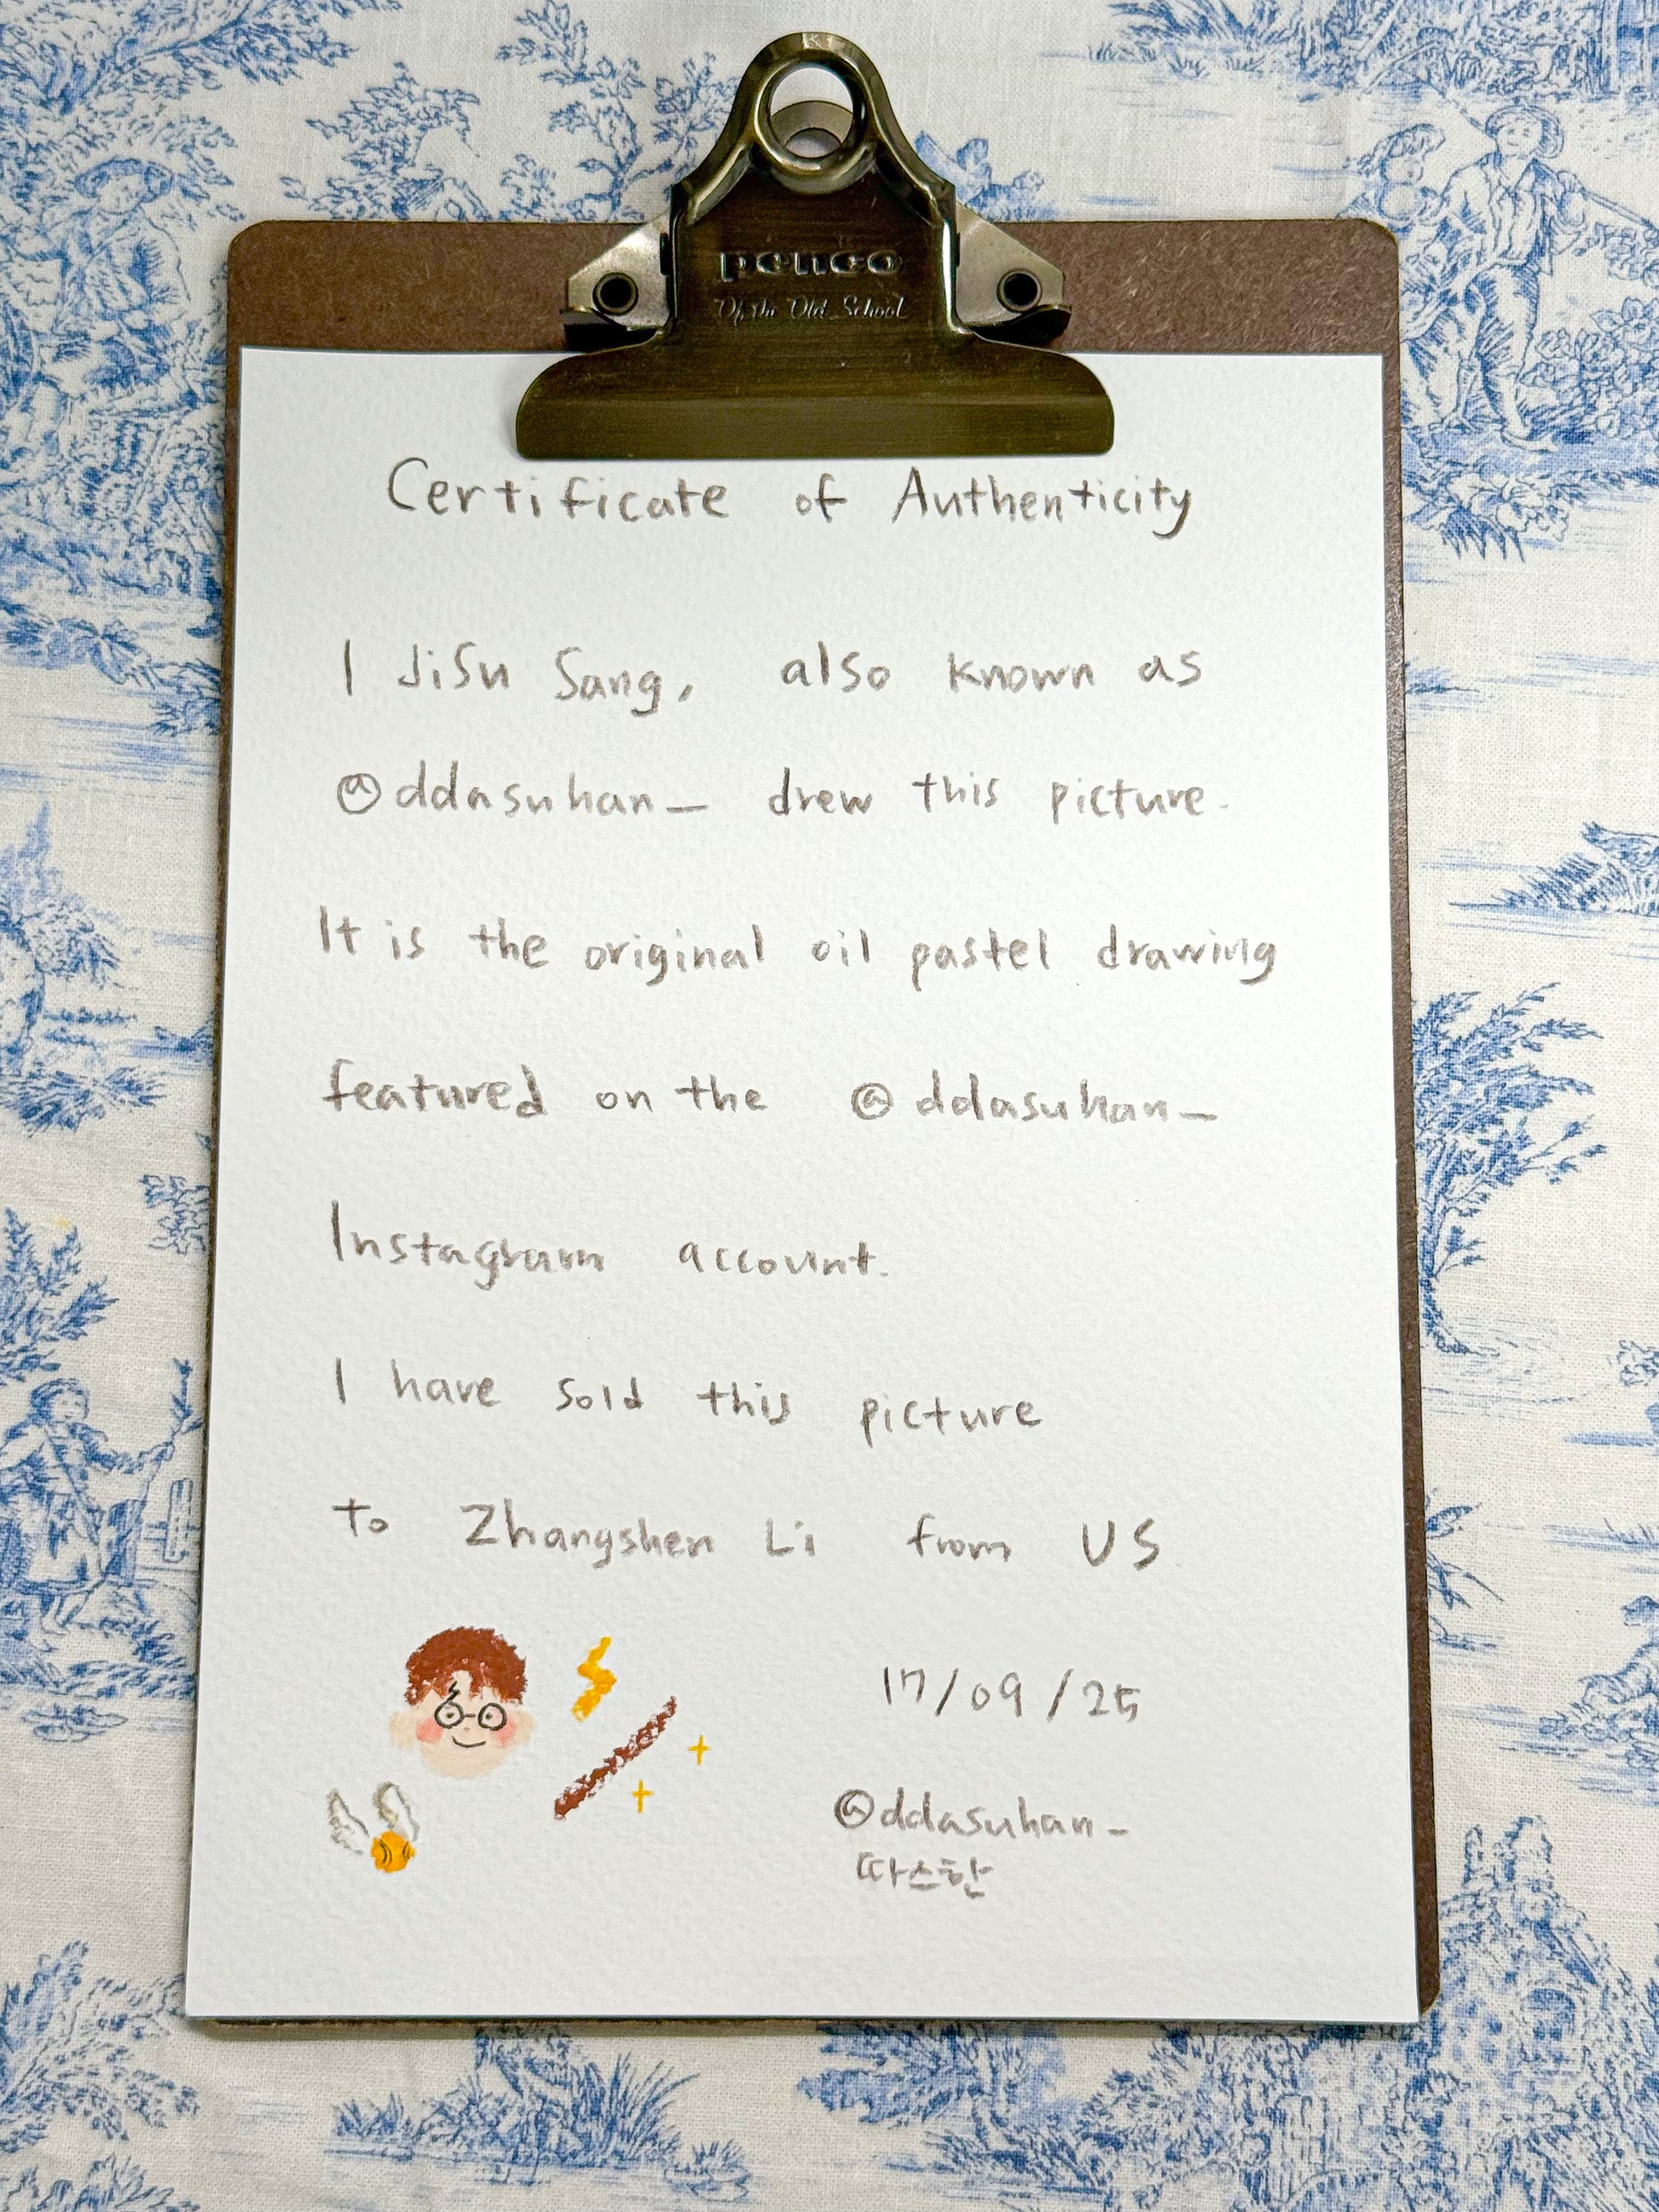 penco
Of the Old School
Certificate of Authenticity
I JiSu Sang, also known as
@ddasuhan_ drew this picture.
It is the original oil pastel drawing
featured on the @ddasuhan_
Instagram account.
I have sold this picture
to Zhangshen Li from US
17/09/25
@ddasuhan_
따스한